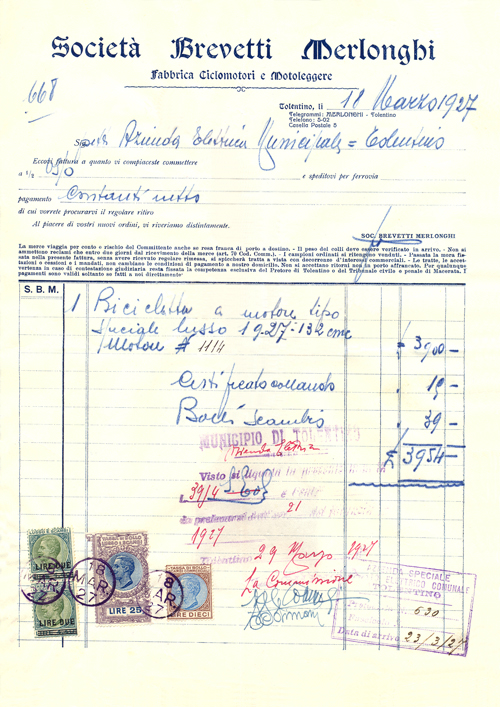 Società Brevetti Merlonghi
Fabbrica Ciclomotori e Motoleggere
668
Tolentino, li 18 Marzo 1927
Telegrammi: MERLONGHI - Tolentino
Telefono: 5-02
Casella Postale 5
Spett. Azienda Elettrica Municipale = Tolentino
Eccovi fattura a quanto vi compiaceste commettere
a 1/2 e speditovi per ferrovia
pagamento Contanti netto
di cui vorrete procurarvi il regolare ritiro
Al piacere di vostri nuovi ordini, vi riveriamo distintamente.
SOC. BREVETTI MERLONGHI
La merce viaggia per conto e rischio del Committente anche se resa franca di porto a destino. - Il peso dei colli deve essere verificato in arrivo. - Non si
ammettono reclami che entro due giorni dal ricevimento della merce (art. 70 Cod. Comm.). - I campioni ordinati si ritengono venduti. - Passata la mora fis-
sata nella presente fattura, senza avere ricevuto regolare rimessa, si spiccherà tratta a vista con decorrenze d'interessi commerciali. - Le tratte, le accet-
tazioni e cessioni e i mandati, non cambiano le condizioni di pagamento a nostro domicilio. - Non si accettano ritorni non in porto affrancato. Per qualunque
vertenza in caso di contestazione giudiziaria resta fissata la competenza esclusiva del Pretore di Tolentino e del Tribunale civile e penale di Macerata. I
pagamenti sono validi soltanto se fatti a noi direttamente
S. B. M.
1 Bicicletta a motore tipo
Speciale lusso 1927-132 cmc
Motore # 1114 3900 -
Certificato collaudo 15 -
Bolli scambio 39 -
MUNICIPIO DI TOLENTINO
£ 3954 -
Azienda Elettrica
Visto si liquida in
L. 3914
21
1927
Tolentino 29 Marzo 1927
La Commissione
LIRE DUE
LIRE DUE
TASSA DI BOLLO
LIRE 25
TASSA DI BOLLO
LIRE DIECI
18 MAR. 27
18 MAR. 27
AZIENDA SPECIALE
ELETTRICO COMUNALE
TOLENTINO
630
Data di arrivo 23/3/27